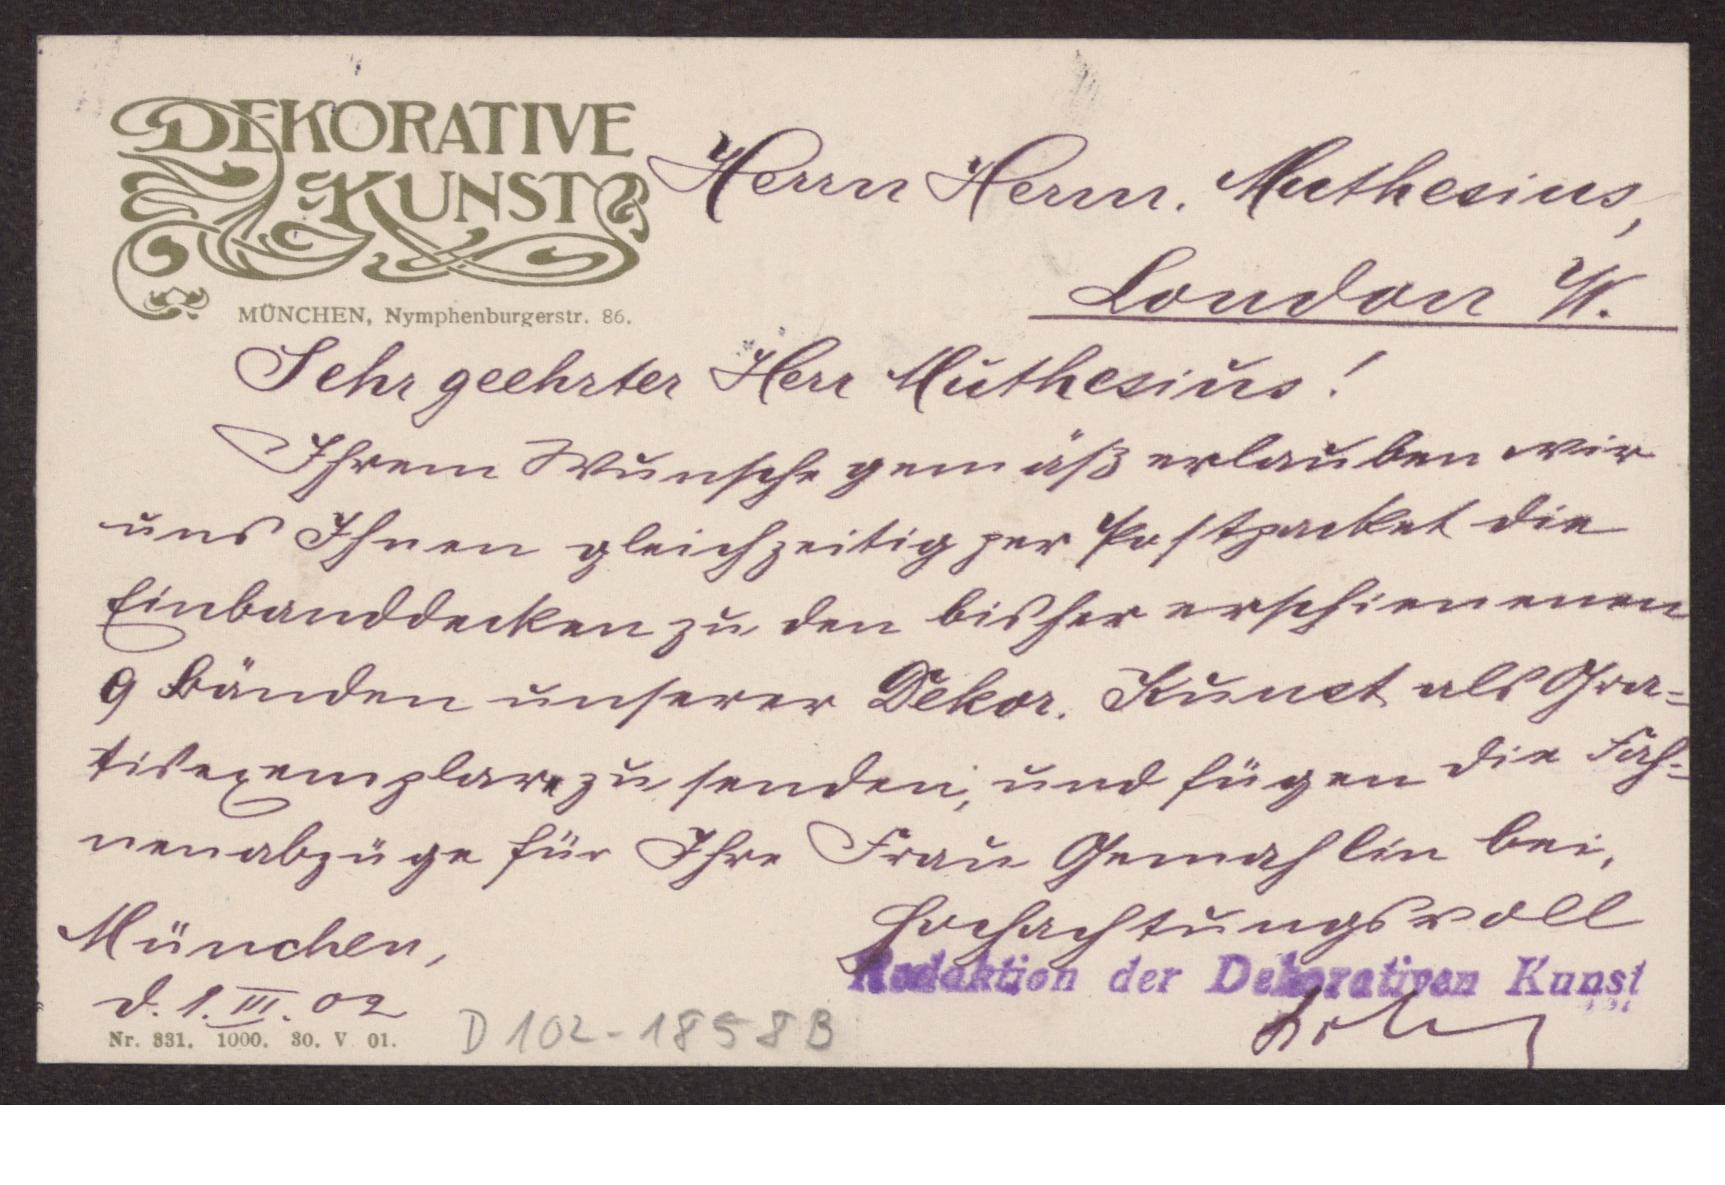 DEKORATIVE
KUNST
MÜNCHEN, Nymphenburgerstr. 86.
Herrn Herm. Muthesius,
London W.
Sehr geehrter Herr Muthesius!
Ihrem Wunsche gemäß erlauben wir
uns Ihnen gleichzeitig per Postpacket die
Einbanddecken zu den bisher erschienenen
9 Bänden unserer Dekor. Kunst als Gra-
tisexemplare zu senden, und fügen die Fah-
nenabzüge für Ihre Frau Gemahlin bei.
Hochachtungsvoll
Redaktion der Dekorativen Kunst
München,
d. 1. III. 02
Nr. 831. 1000. 30. V 01.
D 102-1858B